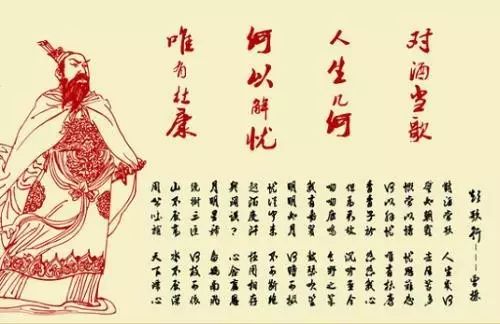 对酒当歌
人生几何
何以解忧
唯有杜康
短歌行——曹操
对酒当歌 人生几何
譬如朝露 去日苦多
慨当以慷 忧思难忘
何以解忧 唯有杜康
青青子衿 悠悠我心
但为君故 沉吟至今
呦呦鹿鸣 食野之苹
我有嘉宾 鼓瑟吹笙
明明如月 何时可掇
忧从中来 不可断绝
越陌度阡 枉用相存
契阔谈 心念旧恩
月明星稀 乌鹊南飞
绕树三匝 何枝可依
山不厌高 水不厌深
周公吐哺 天下归心